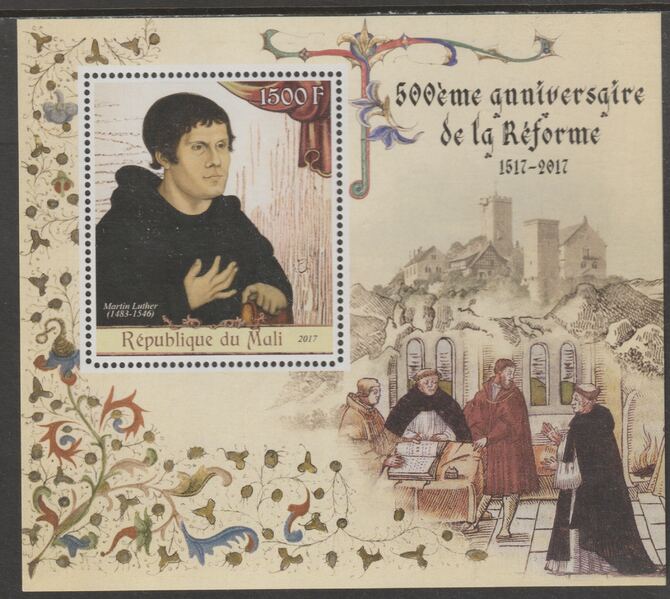 1500 F
500ème anniversaire
de la Réforme
1517-2017
Martin Luther
(1483-1546)
République du Mali 2017